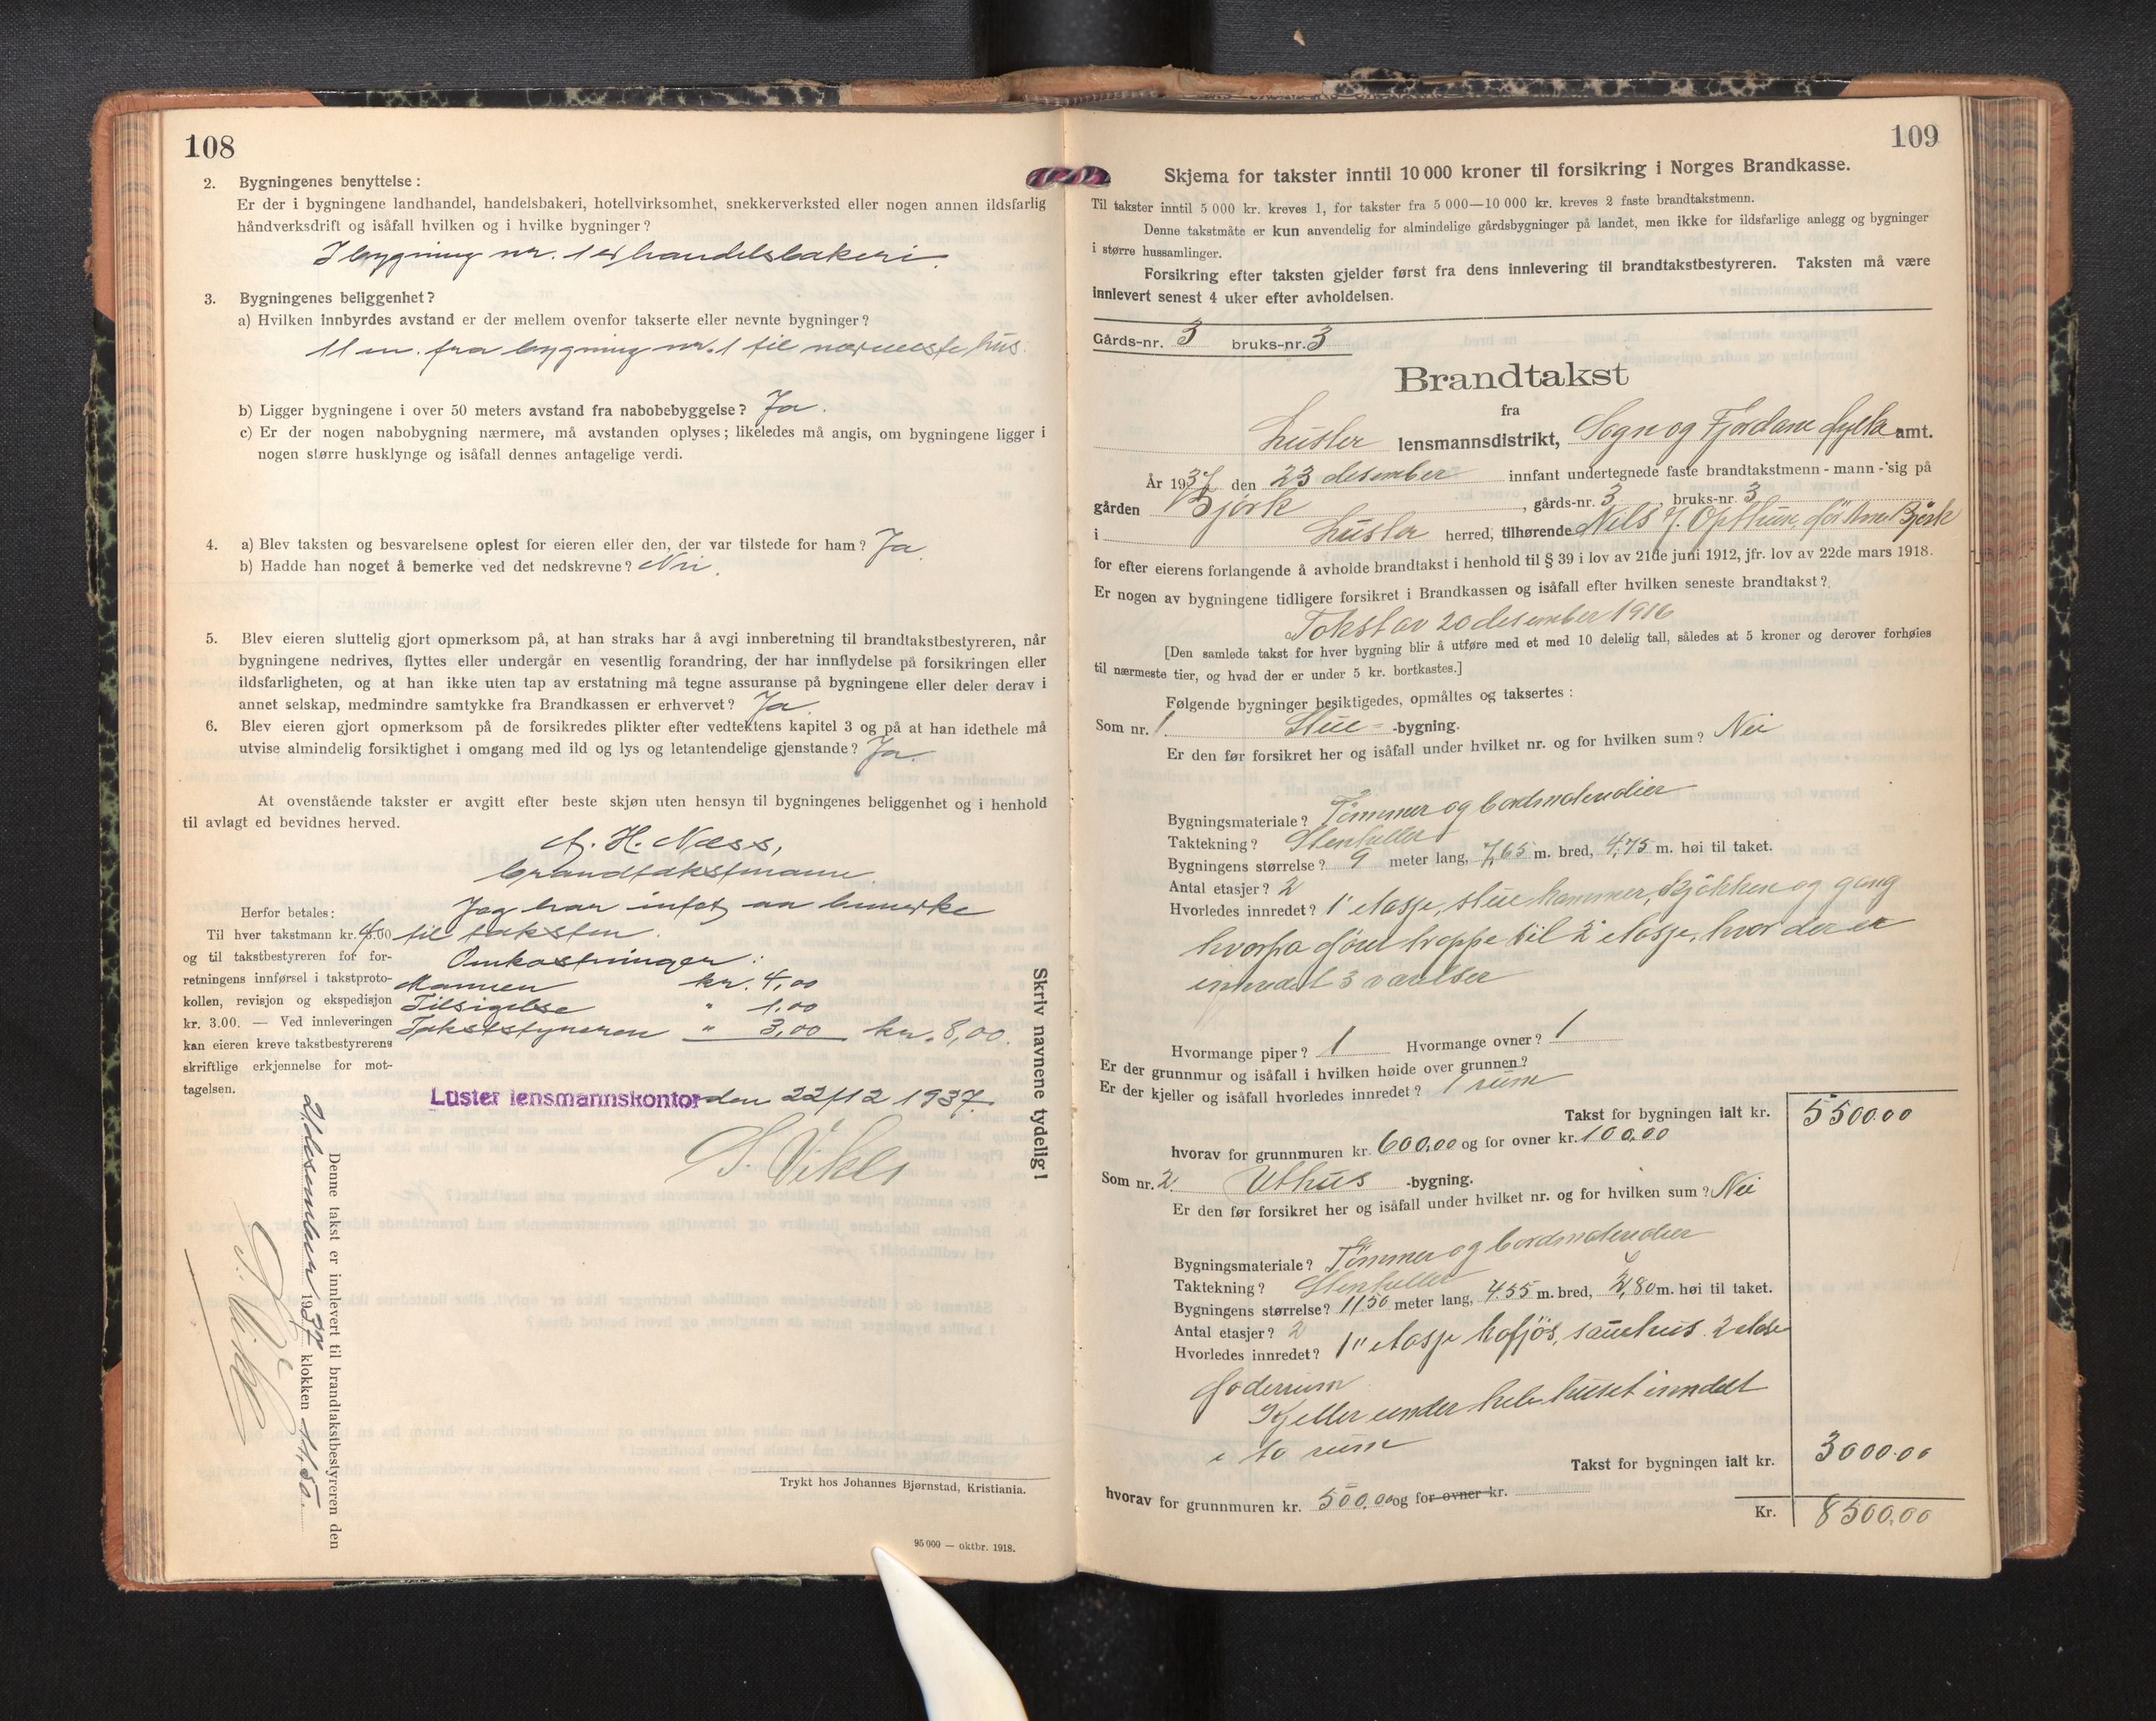 108
2. Bygningenes benyttelse:
Er der i bygningene landhandel, handelsbakeri, hotellvirksomhet, snekkerverksted eller nogen annen ildsfarlig
håndverksdrift og isåfall hvilken og i hvilke bygninger?
I bygning nr. 1 er handelsbakeri.
3. Bygningenes beliggenhet?
a) Hvilken innbyrdes avstand er der mellem ovenfor takserte eller nevnte bygninger?
11 m. fra bygning nr. 1 til nærmeste hus.
b) Ligger bygningene i over 50 meters avstand fra nabobebyggelse? Ja.
c) Er der nogen nabobygning nærmere, må avstanden oplyses; likeledes må angis, om bygningene ligger i
nogen større husklynge og isåfall dennes antagelige verdi.
4. a) Blev taksten og besvarelsene oplest for eieren eller den, der var tilstede for ham? Ja.
b) Hadde han noget å bemerke ved det nedskrevne? Nei.
5. Blev eieren sluttelig gjort opmerksom på, at han straks har å avgi innberetning til brandtakstbestyreren, når
bygningene nedrives, flyttes eller undergår en vesentlig forandring, der har innflydelse på forsikringen eller
ildsfarligheten, og at han ikke uten tap av erstatning må tegne assuranse på bygningene eller deler derav i
annet selskap, medmindre samtykke fra Brandkassen er erhvervet? Ja.
6. Blev eieren gjort opmerksom på de forsikredes plikter efter vedtektens kapitel 3 og på at han idethele må
utvise almindelig forsiktighet i omgang med ild og lys og letantendelige gjenstande? Ja.
At ovenstående takster er avgitt efter beste skjøn uten hensyn til bygningenes beliggenhet og i henhold
til avlagt ed bevidnes herved.
A. H. Næss,
brandtakstmann.
Jeg har intet aa bemerke
til taksten.
Herfor betales:
Til hver takstmann kr. 4.00
og til takstbestyreren for for-
retningens innførsel i takstproto-
kollen, revisjon og ekspedisjon
kr. 3.00. — Ved innleveringen
kan eieren kreve takstbestyrerens
skriftlige erkjennelse for mot-
tagelsen.
Omkostninger:
Mannen kr. 4,00
Tilsigelse " 1.00
Takststyreren " 3,00 kr. 8,00.
Luster lensmannskontor den 22/12 1937.
S. Vikle
Skriv navnene tydelig!
Denne takst er innlevert til brandtakstbestyreren den
desember 1937 klokken 11,50.
S. Vikle
Trykt hos Johannes Bjørnstad, Kristiania.
95 000 — oktbr. 1918.
109
Skjema for takster inntil 10 000 kroner til forsikring i Norges Brandkasse.
Til takster inntil 5 000 kr. kreves 1, for takster fra 5 000—10 000 kr. kreves 2 faste brandtakstmenn.
Denne takstmåte er kun anvendelig for almindelige gårdsbygninger på landet, men ikke for ildsfarlige anlegg og bygninger
i større hussamlinger.
Forsikring efter taksten gjelder først fra dens innlevering til brandtakstbestyreren. Taksten må være
innlevert senest 4 uker efter avholdelsen.
Gårds-nr. 3 bruks-nr. 3
Brandtakst
fra
Luster lensmannsdistrikt, Sogn og Fjordane fylke amt.
År 1937 den 23 desember innfant undertegnede faste brandtakstmenn - mann - sig på
gården Bjørk, gårds-nr. 3 bruks-nr. 3
i Luster herred, tilhørende Nils J. Opthun, for Bjørk
for efter eierens forlangende å avholde brandtakst i henhold til § 39 i lov av 21de juni 1912, jfr. lov av 22de mars 1918.
Er nogen av bygningene tidligere forsikret i Brandkassen og isåfall efter hvilken seneste brandtakst?
Takst av 20 desember 1916
[Den samlede takst for hver bygning blir å utføre med et med 10 delelig tall, således at 5 kroner og derover forhøies
til nærmeste tier, og hvad der er under 5 kr. bortkastes.]
Følgende bygninger besiktigedes, opmåltes og taksertes:
Som nr. 1 Stue -bygning.
Er den før forsikret her og isåfall under hvilket nr. og for hvilken sum? Nei
Bygningsmateriale? Tømmer og bordmaterialier
Taktekning? Stenheller
Bygningens størrelse? 9 meter lang, 7,65 m. bred, 4,75 m. høi til taket.
Antal etasjer? 2
Hvorledes innredet? 1' etasje, stue kammer, kjøkken og gang
hvorfra fører trappe til 2' etasje, hvor der er
innredet 3 værelser
Hvormange piper? 1 Hvormange ovner? 1
Er der grunnmur og isåfall i hvilken høide over grunnen?
Er der kjeller og isåfall hvorledes innredet? 1 rum
Takst for bygningen ialt kr. 5500.00
hvorav for grunnmuren kr. 600,00 og for ovner kr. 100,00
Som nr. 2. Uthus -bygning.
Er den før forsikret her og isåfall under hvilket nr. og for hvilken sum? Nei
Bygningsmateriale? Tømmer og bordmaterialier
Taktekning? Stenheller
Bygningens størrelse? 11.50 meter lang, 4.55 m. bred, 80 m. høi til taket.
Antal etasjer? 2
Hvorledes innredet? 1" etasje kofjøs, sauehus. 2 etasje
foderrum
Kjeller under hele huset inndelt
i to rum
Takst for bygningen ialt kr. 3000.00
hvorav for grunnmuren kr. 500.00 og for ovner kr.
Kr. 8500.00